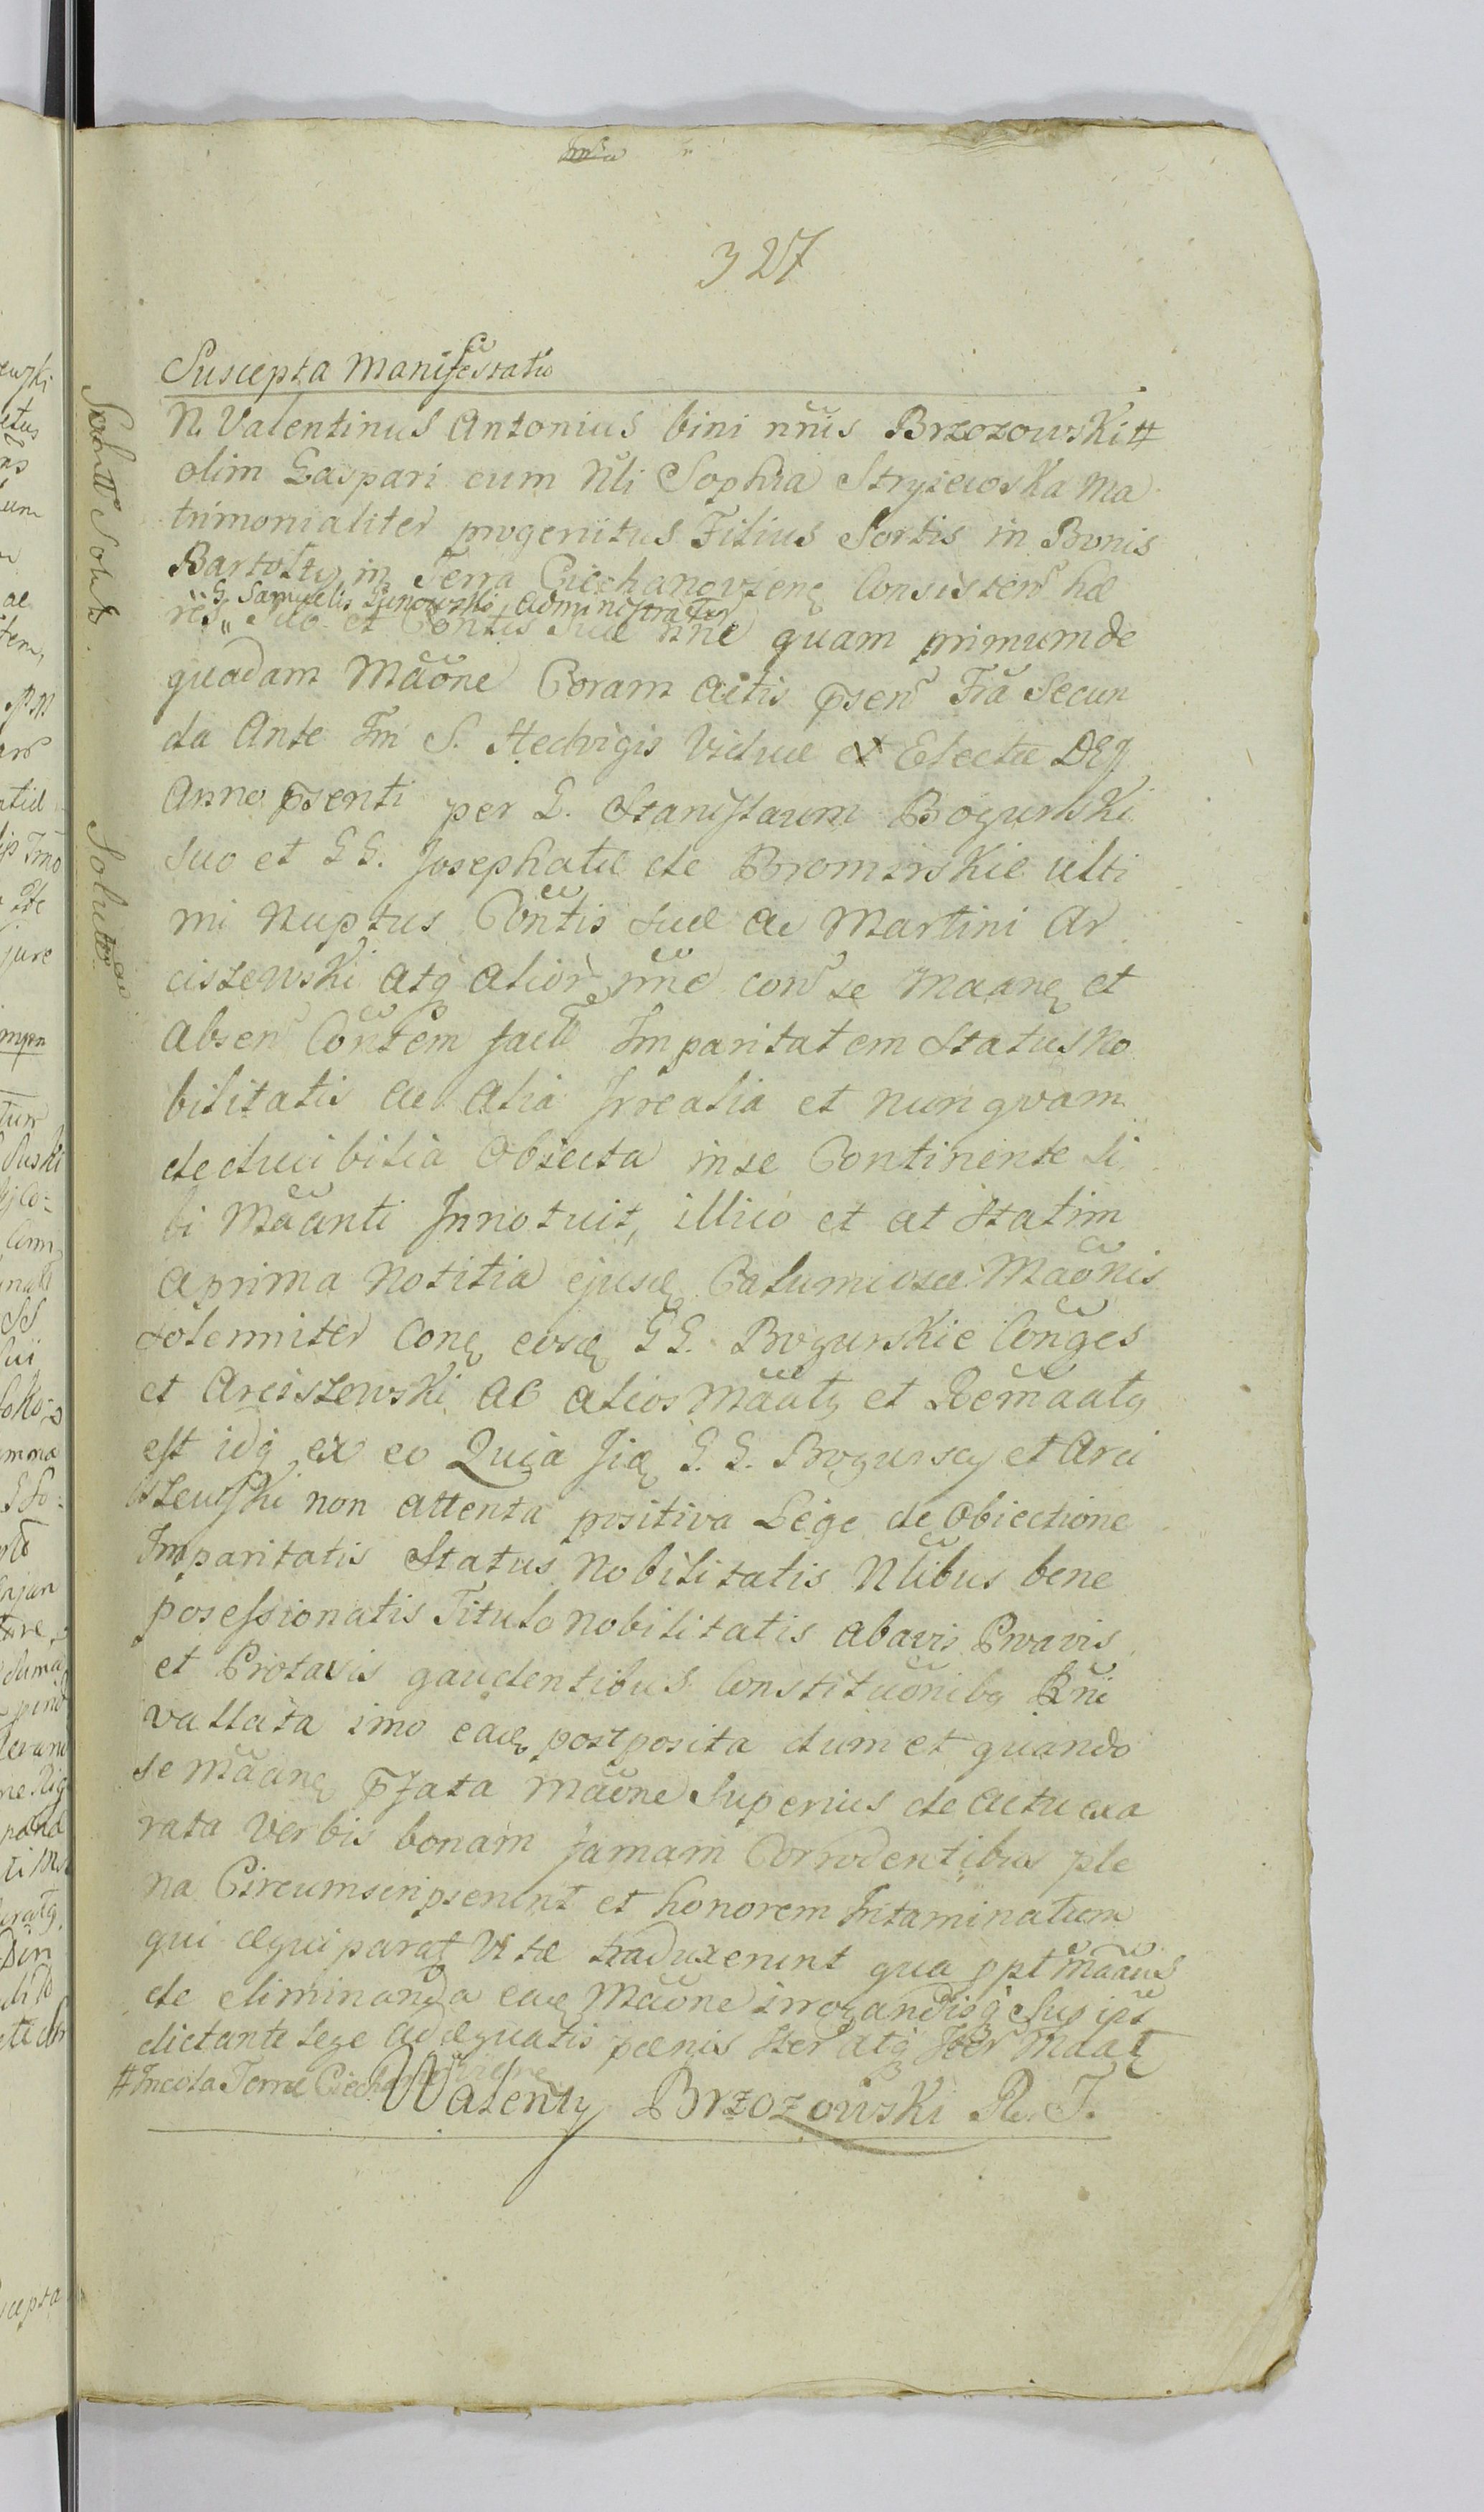 327
Suscepta Manifestatio
N. Valentinus Antonius bini nnis Brzozowski #
olim Gaspari cum Nli Sophia Stryiewska Ma
trimonialiter progenitus Filius Sortis in Bonis
Bartołty in Terra Ciechanovien Consisten hæ
G. Samuelis Administrator
res,, Suo et Contis Suæ nne quam primum de
quadam Maone Coram Actis psen Fra Secun
da Ante Fm S. Hedvigis Viduæ et Electæ DEJ
Anno psenti per G. Stanislaum Bogurski
suo et GG. Josephatæ de Bromirskie ulti
mi Nuptus Contis suæ ac Martini Ar
ciszewski atq alior nne con se Maanq et
absen Contem fact Imparitatem Status No
bilitatis ac alia Irrealia et nunqvam
deducibilia Obiecta in se Continente Si
bi Maanti Innotuit, illico et at statim
a prima Notitia ejusd Calumiosæ Maonis
Solenniter Conq eosd GG. Bogurskie Conges
et Arciszewski ac alios Maatq et Remaatq
est idq ex eo Quia Jid G. G. Bogurscy et Arci
szewski non attenta positiva Lege de Obiectione
Imparitatis Status Nobilitatis Nlibus bene
posessionatis Titulo Nobilitatis abavis Proavis
et Protavis gaudentibus Constituonibq Rni
vallata imo eadq postposita dum et quando
se Maanq pfata Maone Superius de actu exa
rata Verbis bonam famam Corrodentibus ple
na Circumscripserunt et honorem Intaminatum
qui æquiparat Vitæ traduxerunt qua ppt Maans
de eliminanda ead Maone irrogandisq Sup ips
dictante lege adæquatis pænis Iter atq Iter Maat
# Incola Terræ
Walenty Brzozowski R. J.